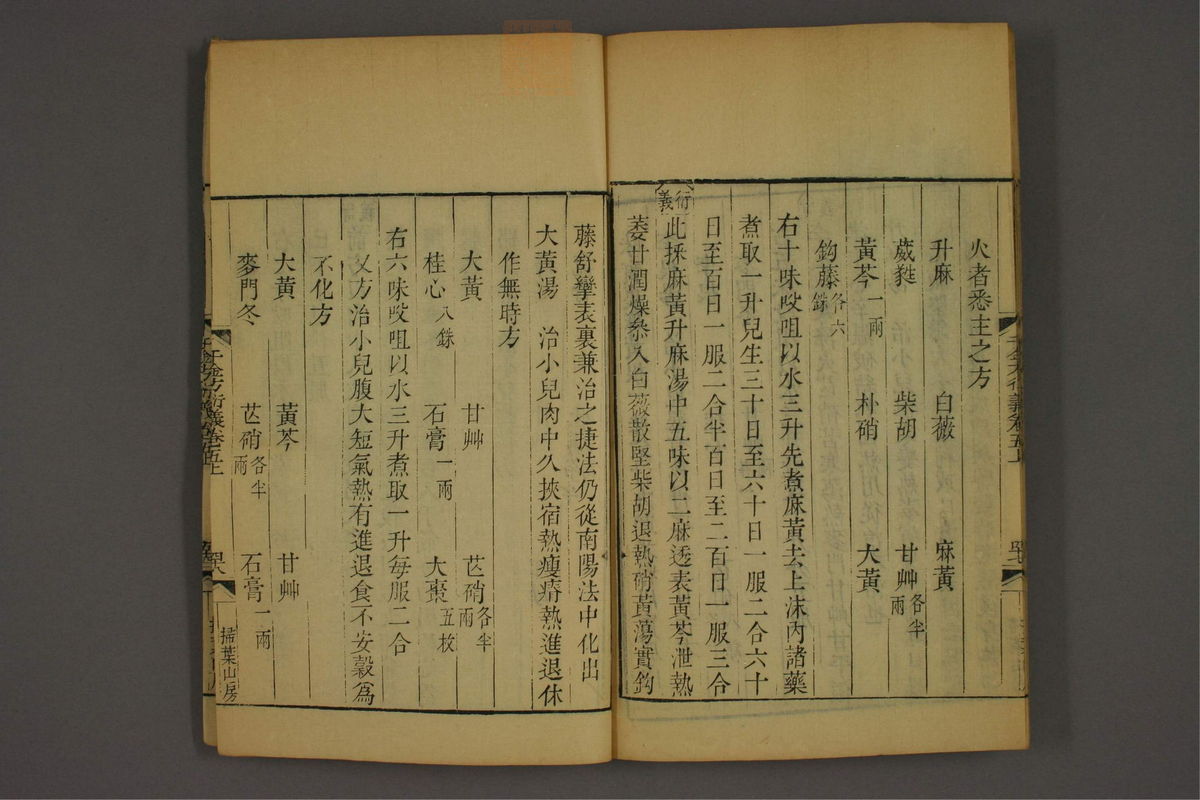 火者悉主之方
升麻 白薇 麻黃
葳蕤 柴胡 甘艸各半兩
黃芩一兩 朴硝 大黃
鈎藤各六銖
右十味㕮咀以水三升先煮麻黃去上沫內諸藥
煮取一升兒生三十日至六十日一服二合六十
日至百日一服二合半百日至二百日一服三合
衍義
此採麻黃升麻湯中五味以二麻透表黃芩泄熱
萎甘潤燥參入白薇散堅柴胡退熱硝黃蕩實鈎
藤舒攣表裏兼治之捷法仍從南陽法中化出
大黃湯 治小兒肉中久挾宿熱瘦瘠熱進退休
作無時方
大黃 甘艸 芒硝各半兩
桂心八銖 石膏一兩 大棗五枚
右六味㕮咀以水三升煮取一升每服二合
又方治小兒腹大短氣熱有進退食不安穀爲
不化方
大黃 黃芩 甘艸
麥門冬 芒硝各半兩 石膏一兩
千金方衍義卷五上
掃葉山房